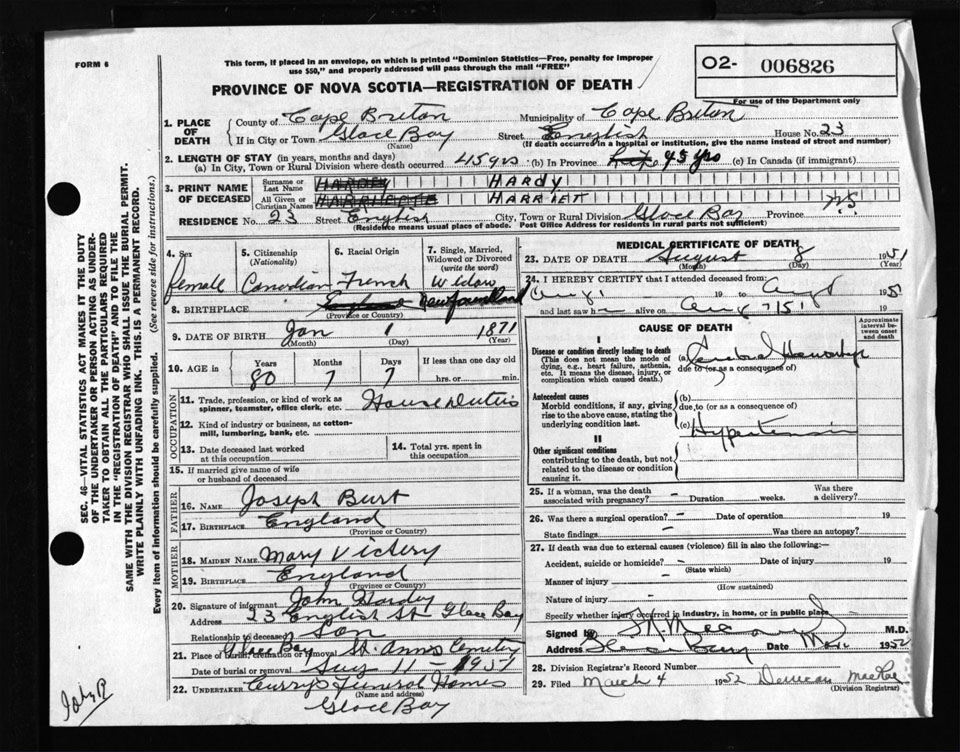 FORM 6
This form, if placed in an envelope, on which is printed "Dominion Statistics—Free, penalty for improper
use $50," and properly addressed will pass through the mail "FREE"
PROVINCE OF NOVA SCOTIA—REGISTRATION OF DEATH
02- 006826
For use of the Department only
1. PLACE OF DEATH
County of Cape Breton Municipality of Cape Breton
If in City or Town Glace Bay Street English House No. 23
(Name) (If death occurred in a hospital or institution, give the name instead of street and number)
2. LENGTH OF STAY (in years, months and days)
(a) In City, Town or Rural Division where death occurred 45 yrs (b) In Province 45 yrs (c) In Canada (if immigrant)
3. PRINT NAME OF DECEASED
Surname or Last Name HARDY
All Given or Christian Names HARRIET
RESIDENCE No. 23 Street English City, Town or Rural Division Glace Bay Province N.S.
(Residence means usual place of abode. Post Office Address for residents in rural parts not sufficient)
4. Sex
female
5. Citizenship (Nationality)
Canadian
6. Racial Origin
French
7. Single, Married, Widowed or Divorced (write the word)
Widow
8. BIRTHPLACE England Newfoundland
(Province or Country)
9. DATE OF BIRTH Jan 1 1871
(Month) (Day) (Year)
10. AGE in
Years Months Days If less than one day old
80 7 7 hrs. or min.
OCCUPATION
11. Trade, profession, or kind of work as spinner, teamster, office clerk, etc. House Duties
12. Kind of industry or business, as cotton-mill, lumbering, bank, etc.
13. Date deceased last worked at this occupation
14. Total yrs. spent in this occupation
15. If married give name of wife or husband of deceased
FATHER
16. NAME Joseph Burt
17. BIRTHPLACE England
(Province or Country)
MOTHER
18. MAIDEN NAME Mary Victery
19. BIRTHPLACE England
(Province or Country)
20. Signature of informant John Hardy
Address 23 English St Glace Bay
Relationship to deceased Son
21. Place of burial, cremation or removal Glace Bay St. Anns Cemetery
Date of burial or removal Aug 11 - 1951
22. UNDERTAKER Curry's Funeral Homes
(Name and address)
Glace Bay
MEDICAL CERTIFICATE OF DEATH
23. DATE OF DEATH August 8 1951
(Month) (Day) (Year)
24. I HEREBY CERTIFY that I attended deceased from:
Aug 1 19 to Aug 8 195
and last saw h alive on Aug 7 1951
CAUSE OF DEATH
Approximate interval between onset and death
I
Disease or condition directly leading to death (a) Cerebral Hemorrhage
(This does not mean the mode of dying, e.g., heart failure, asthenia, etc. It means the disease, injury, or complication which caused death.)
due to (or as a consequence of)
Antecedent causes
Morbid conditions, if any, giving rise to the above cause, stating the underlying condition last.
(b)
due to (or as a consequence of)
(c) Hypertension
II
Other significant conditions
contributing to the death, but not related to the disease or condition causing it.
25. If a woman, was the death associated with pregnancy? - Duration weeks. Was there a delivery?
26. Was there a surgical operation? - Date of operation 19
State findings - Was there an autopsy?
27. If death was due to external causes (violence) fill in also the following:—
Accident, suicide or homicide? - Date of injury 19
(State which)
Manner of injury -
(How sustained)
Nature of injury -
Specify whether injury occurred in industry, in home, or in public place
Signed by M.D.
Address Glace Bay Date 1952
28. Division Registrar's Record Number
29. Filed March 4 1952 Duncan MacRae
(Division Registrar)
SEC. 46—VITAL STATISTICS ACT MAKES IT THE DUTY
OF THE UNDERTAKER OR PERSON ACTING AS UNDER-
TAKER TO OBTAIN ALL THE PARTICULARS REQUIRED
IN THE "REGISTRATION OF DEATH" AND TO FILE THE
SAME WITH THE DIVISION REGISTRAR WHO SHALL ISSUE THE BURIAL PERMIT.
WRITE PLAINLY WITH UNFADING INK. THIS IS A PERMANENT RECORD.
Every item of information should be carefully supplied. (See reverse side for instructions.)